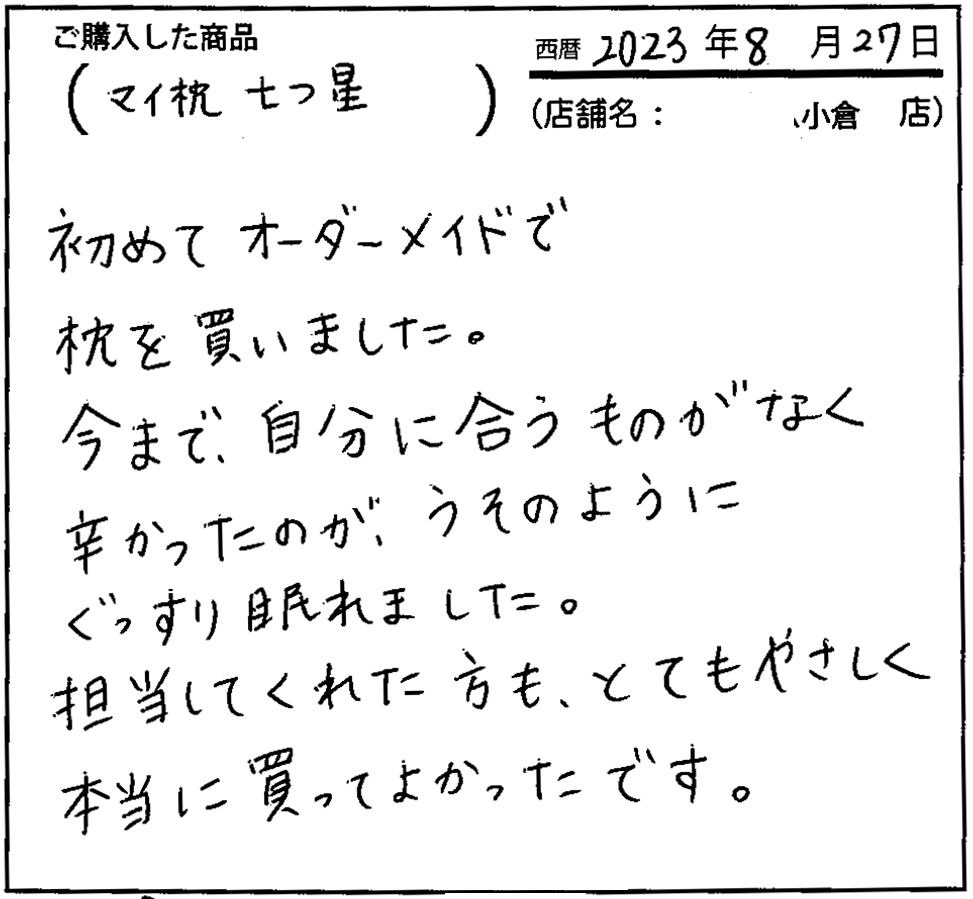 ご購入した商品
(マイ枕 七つ星)
西暦 2023年8月27日
(店舗名: 小倉 店)
初めてオーダーメイドで
枕を買いました。
今まで、自分に合うものがなく
辛かったのが、うそのように
ぐっすり眠れました。
担当してくれた方も、とてもやさしく
本当に買ってよかったです。